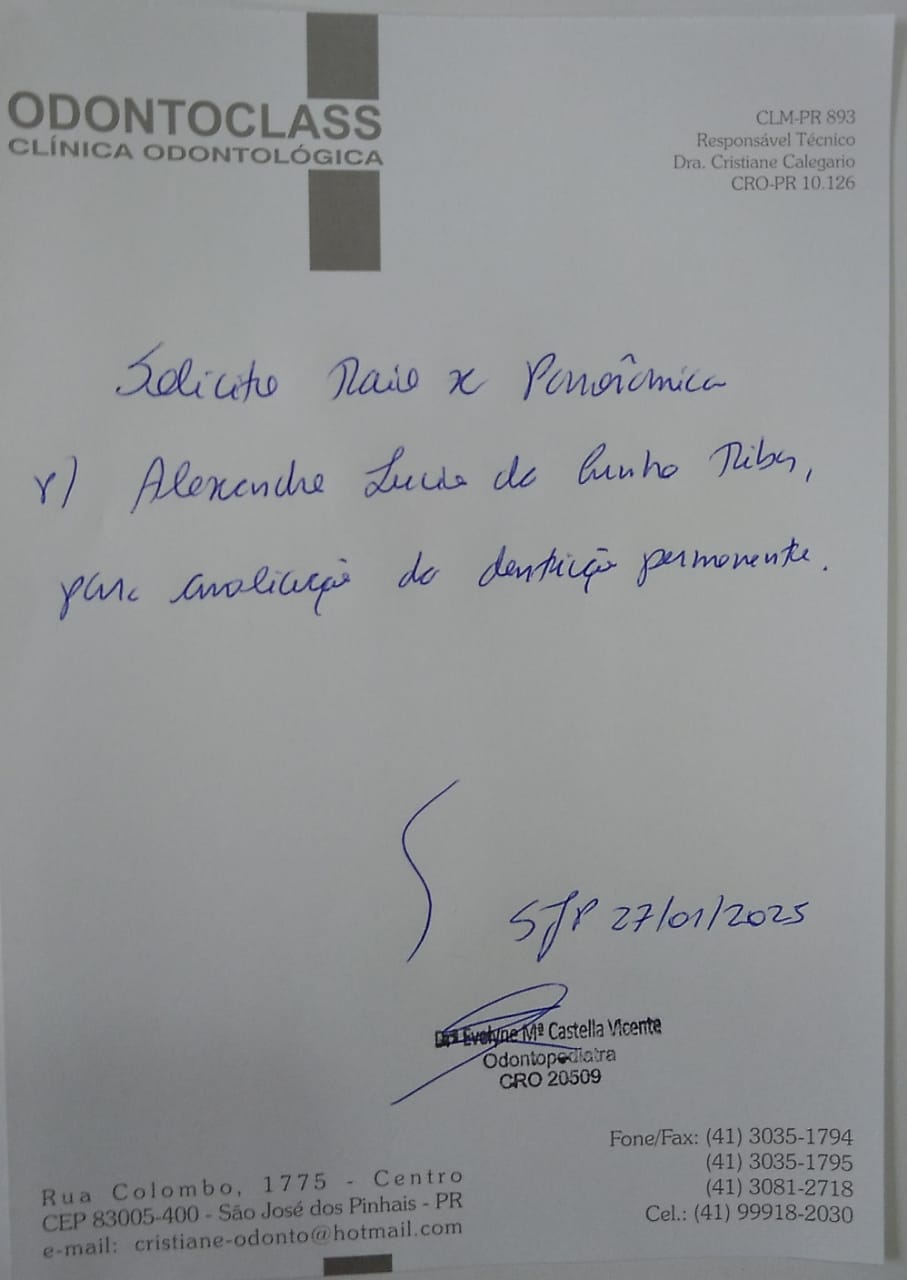 ODONTOCLASS
CLÍNICA ODONTOLÓGICA
CLM-PR 893
Responsável Técnico
Dra. Cristiane Calegario
CRO-PR 10.126
Solicito Raio x Panorâmica
p/ Alexandre Lucio da Cunha Ribas,
para avaliação da dentição permanente.
SJP 27/01/2025
Drª Evelyne Mª Castella Vicente
Odontopediatra
CRO 20509
Fone/Fax: (41) 3035-1794
(41) 3035-1795
(41) 3081-2718
Cel.: (41) 99918-2030
Rua Colombo, 1775 - Centro
CEP 83005-400 - São José dos Pinhais - PR
e-mail: cristiane-odonto@hotmail.com